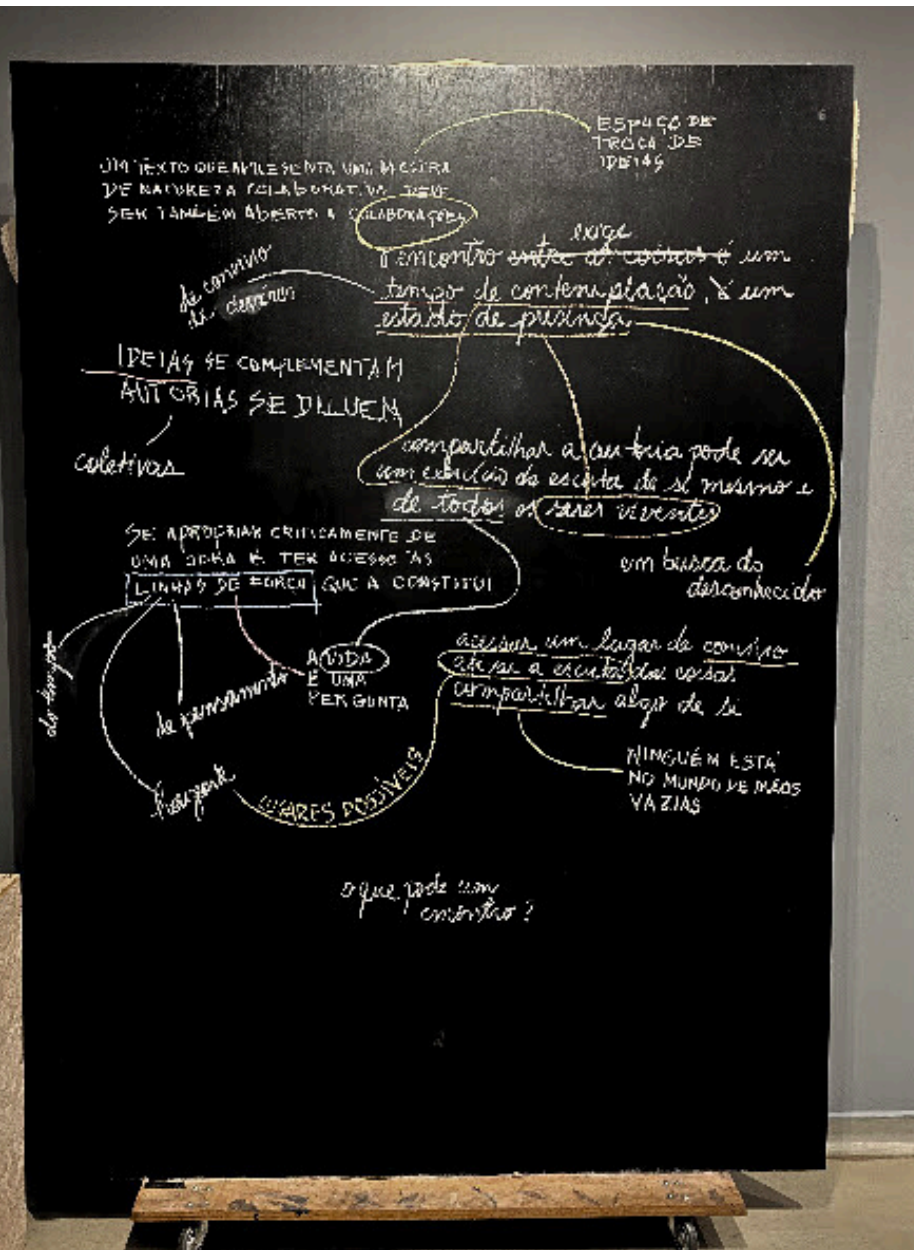 ESPAÇO DE
TROCA DE
IDEIAS
UM TEXTO QUE APRESENTA UMA MOSTRA
DE NATUREZA COLABORATIVA DEVE
SER TAMBÉM ABERTO A COLABORAÇÕES
exige
O encontro entre as coisas é um
tempo de contemplação, é um
estado de presença
de convívio
de
IDEIAS SE COMPLEMENTAM
AUTORIAS SE DILUEM
coletivas
compartilhar a autoria pode ser
um exercício de escuta de si mesmo e
de todos os seres viventes
SE APROPRIAR CRITICAMENTE DE
UMA OBRA É TER ACESSO ÀS
LINHAS DE FORÇA QUE A CONSTITUI
em busca do
desconhecido
do tempo
de pensamento
A VIDA
É UMA
PERGUNTA
acessar um lugar de convívio
até si a escuta das coisas
compartilhar algo de si
horizonte
OLHARES POSSÍVEIS
NINGUÉM ESTÁ
NO MUNDO DE MÃOS
VAZIAS
o que pode um
encontro?